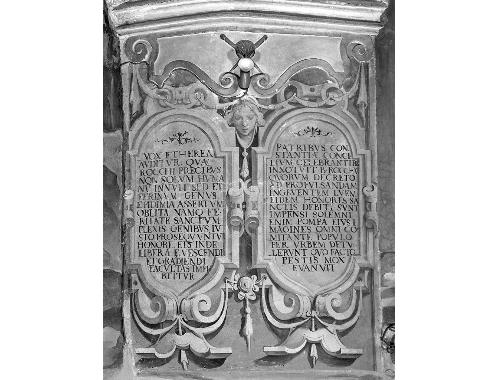 VOX ETHEREA
AVDITVR QVA
ROCCHI PRECIBVS
NON SOLVM HVMA
NV INNVIT SED ET
FERINVM GENVS
EPIDIMIA ASSERTVM
OBLITA NAMQ FE
RITATE SANCTVM
FLEXIS GENIBVS IV
STO PROSEQVVNTVR
HONORE EIS INDE
LIBERA EVESCENDI
ET GRADIENDI
FACVLTAS IMPE
RTITVR
PATRIBVS CON
STANTIÆ CONCI
LIVM CELEBRANTIB
INNOTVIT B ROCC
QVORVM DECRETO
AD PROPVLSANDAM
INGRVENTEM LVEM
EIDEM HONORES SA
NCTIS DEBITI SVNT
IMPENSI SOLEMNI
ENIM POMPA EIVS
IMAGINES OMNI CO
MITANTE POPVLO
PER VRBEM DETV
LERVNT QVO FACTO
PESTIS MOX
EVANVIT